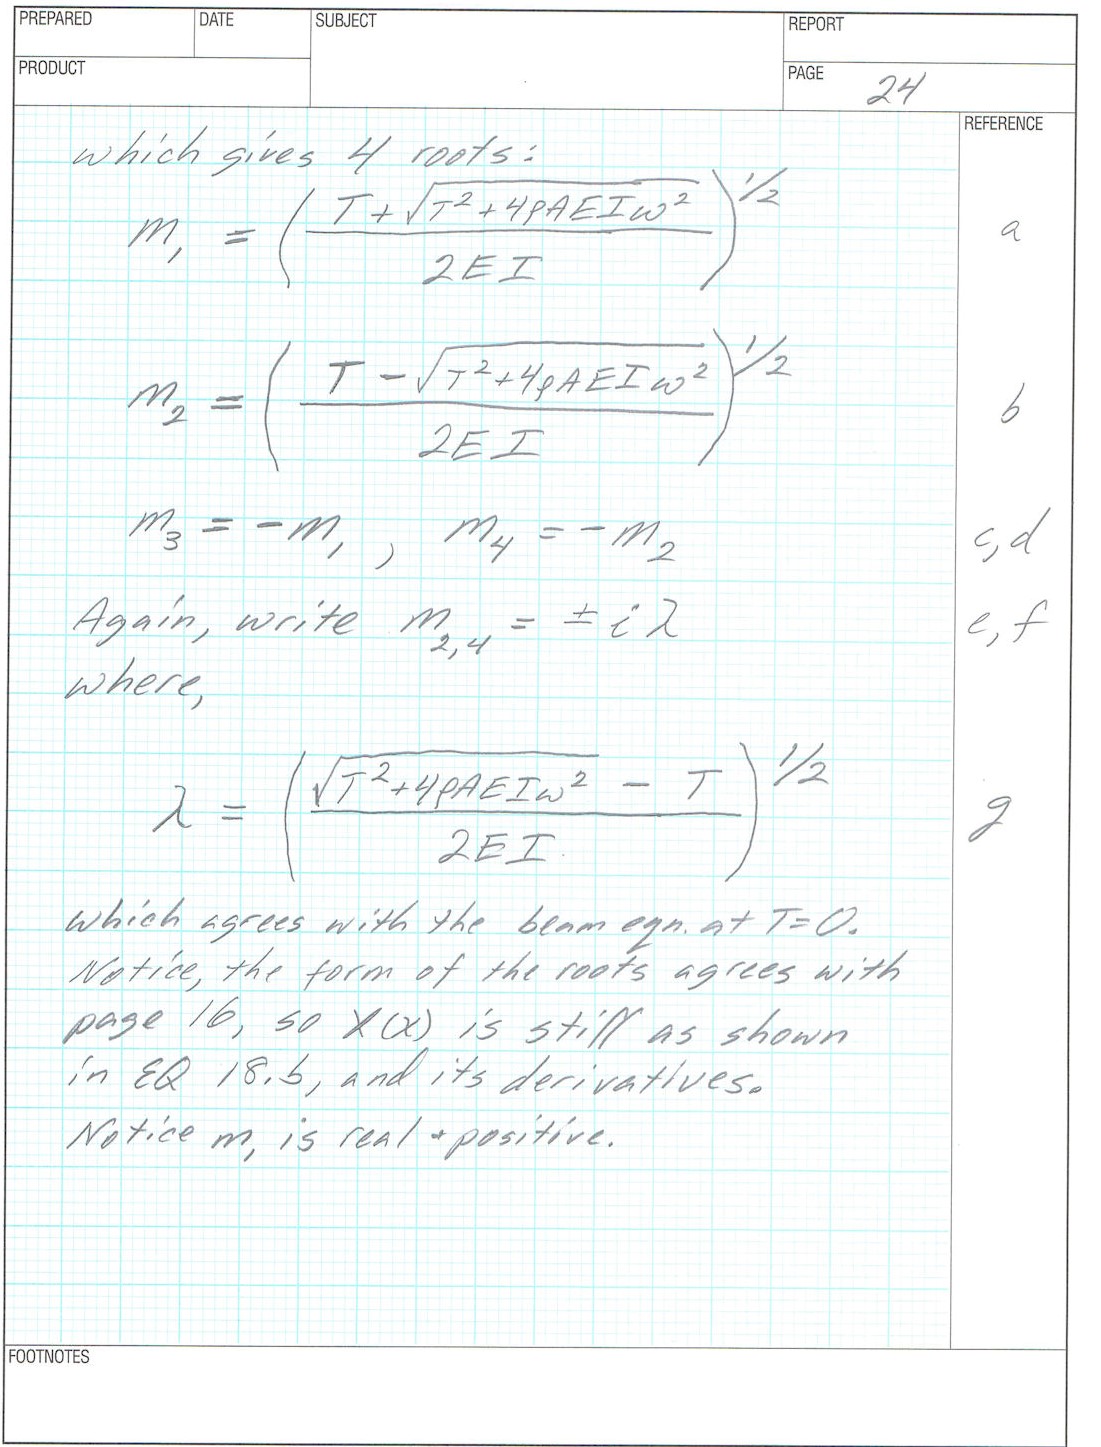 PREPARED DATE SUBJECT REPORT
PRODUCT PAGE 24
REFERENCE
which gives 4 roots:
m₁ = ( (T + √(T² + 4ρAEIω²)) / 2EI )^1/2 a
m₂ = ( (T - √(T² + 4ρAEIω²)) / 2EI )^1/2 b
m₃ = -m₁ , m₄ = -m₂ c,d
Again, write m₂,₄ = ± i λ e, f
where,
λ = ( (√(T² + 4ρAEIω²) - T) / 2EI )^1/2 g
which agrees with the beam eqn. at T=0.
Notice, the form of the roots agrees with
page 16, so X(x) is still as shown
in EQ 18.b, and its derivatives.
Notice m₁ is real + positive.
FOOTNOTES